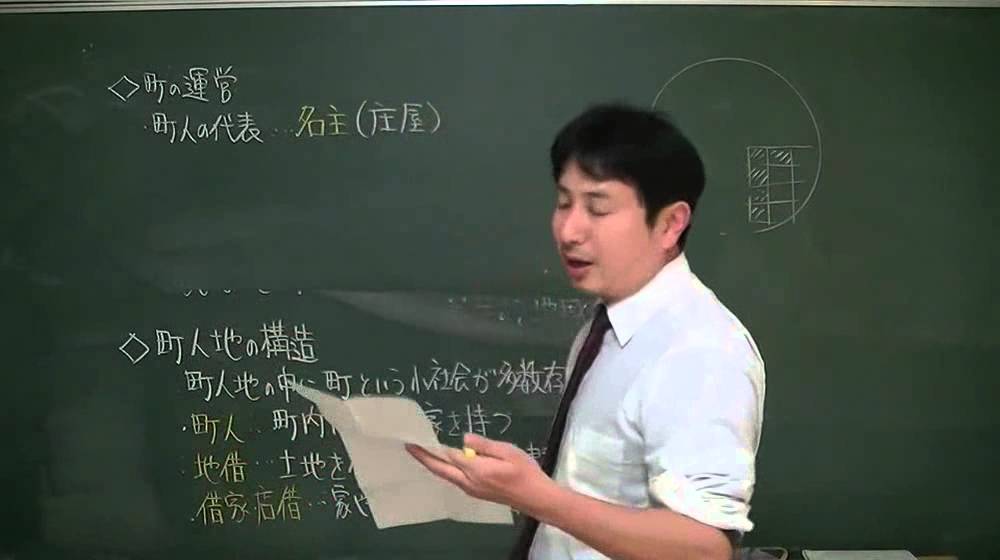 ◇町の運営
・町人の代表…名主(庄屋)
◇町人地の構造
町人地の中に町という小社会が多数存
・町人…町内 家を持つ
・地借…土地を
・借家・店借…家や